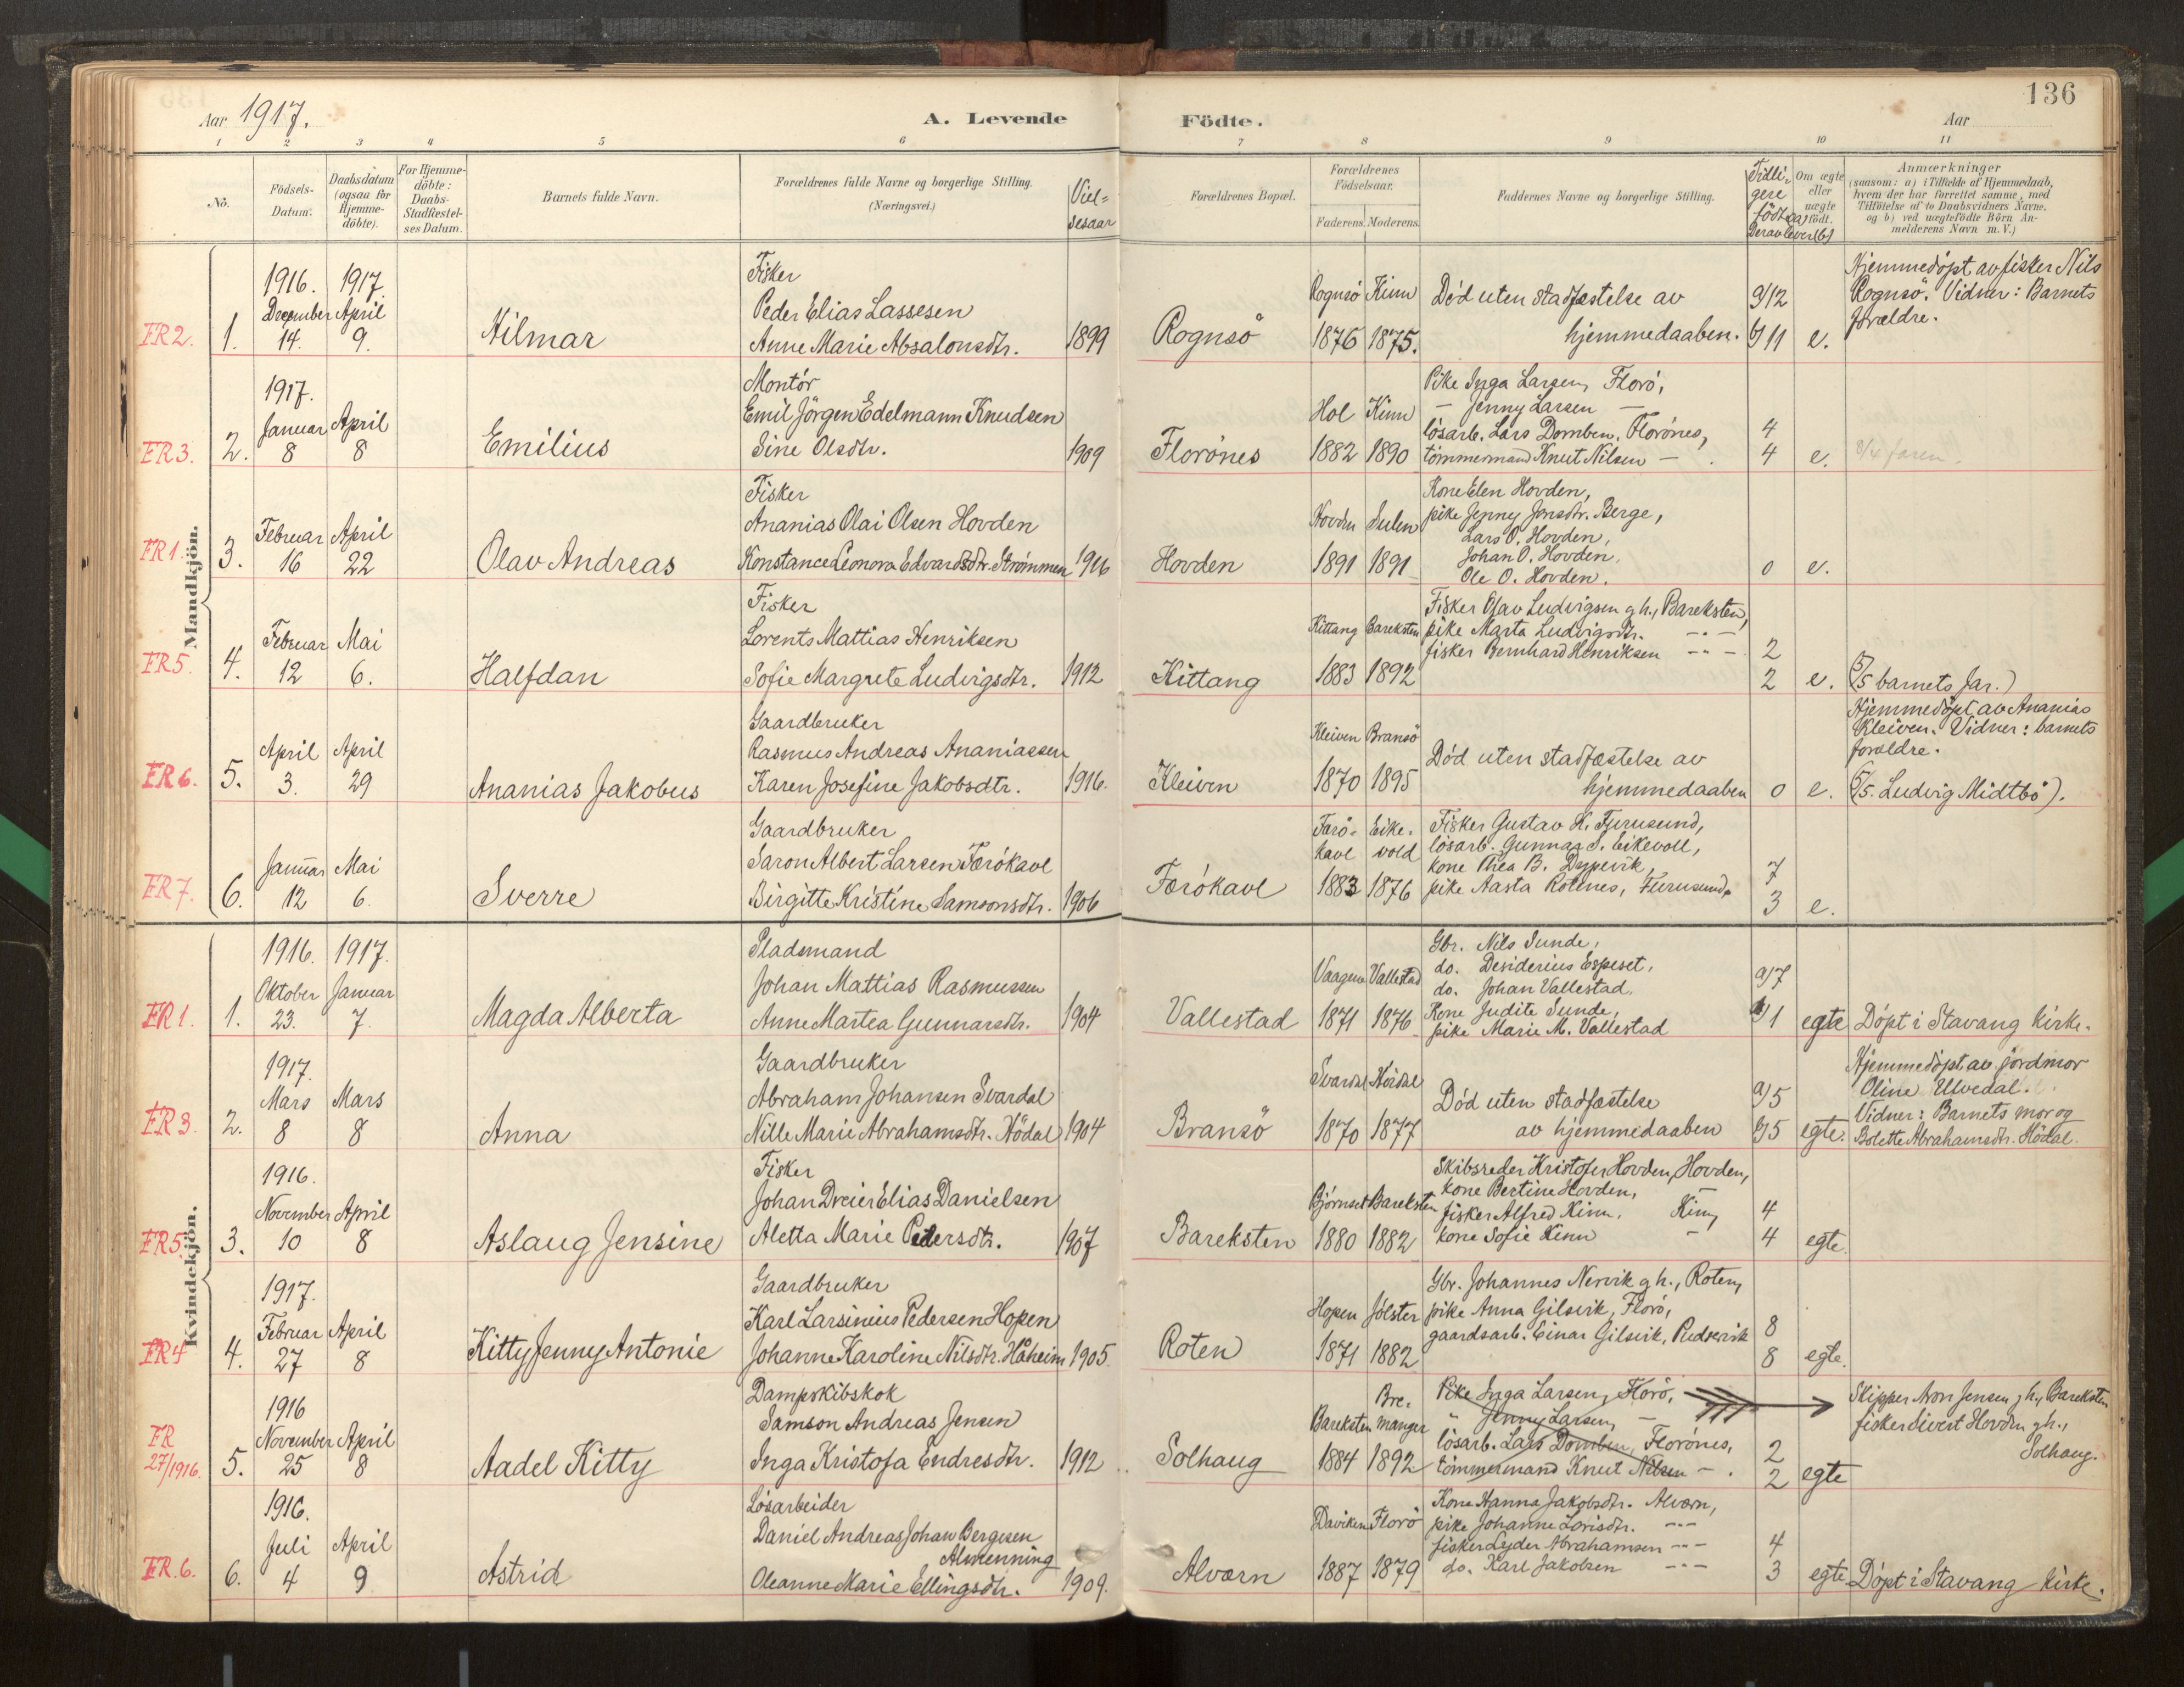 136
Aar 1917.
A. Levende
Födte.
Aar
1 2 3 4 5 6 7 8 9 10 11
No.
Födsels-Datum.
Daabsdatum (ogsaa for Hjemme-döbte).
For Hjemme-döbte: Daabs-Stadfæstel-ses Datum.
Barnets fulde Navn.
Forældrenes fulde Navne og borgerlige Stilling.
(Næringsvei.)
Viel-sesaar
Forældrenes Bopæl.
Forældrenes Födselsaar.
Faderens. Moderens.
Faddernes Navne og borgerlige Stilling.
Tidli-gere født (a) Derav lever (b)
Om ægte eller uægte født.
Anmærkninger
(saasom: a) i Tilfælde af Hjemmedaab,
hvem der har forrettet samme, med
Tilföielse af to Daabsvidners Navne.
og b) ved uægtefödte Börn An-
melderens Navn m. V.)
Mandkjön.
FR 2.
1.
1916. December 14.
1917 April 9.
Hilmar
Fisker
Peder Elias Lassesen
Anne Marie Absalonsdtr.
1899
Rognsö
Rognsö 1876
Kinn 1875.
Död uten stadfæstelse av
hjemmedaaben.
a/12
b/11
e.
Hjemmedöpt av fisker Nils
Rognsö. Vidner: Barnets
forældre.
FR 3.
2.
1917. Januar 8
April 8
Emilius
Montör
Emil Jörgen Edelmann Knudsen
Sine Olsdtr.
1909
Florönes
Hol 1882
Kinn 1890
Pike Inga Larsen, Florö,
— Jenny Larsen —
lösarb. Lars Domben, Florönes,
tömmermand Knut Nilsen — .
4
4
e.
FR 1.
3.
Februar 16
April 22
Olav Andreas
Fisker
Ananias Olai Olsen Hovden
Konstance Leonora Edvardsdtr. Strömmen
1916
Hovden
Hovden 1891
Sulen 1891
Kone Elen Hovden,
pike Jenny Jonsdtr. Berge,
Lars O. Hovden,
Johan O. Hovden,
Ole O. Hovden.
0
e.
FR 5.
4.
Februar 12
Mai 6.
Halfdan
Fisker
Lorents Mattias Henriksen
Sofie Margrete Ludvigsdtr.
1912
Kittang
Kittang 1883
Bareksten 1892
Fisker Olav Ludvigsen g.h., Bareksten,
pike Marta Ludvigsdtr. —"—
fisker Bernhard Henriksen —"—
2
2
e.
(5/5 barnets far.)
FR 6.
5.
April 3.
April 29
Ananias Jakobus
Gaardbruker
Rasmus Andreas Ananiassen
Karen Josefine Jakobsdtr.
1916.
Kleiven
Kleiven 1870
Bransö 1895
Död uten stadfæstelse av
hjemmedaaben
0
e.
Hjemmedöpt av Ananias
Kleiven. Vidner: barnets
forældre.
(5/5. Ludvig Midtbö).
FR 7.
6.
Januar 12
Mai 6.
Sverre
Gaardbruker
Saron Albert Larsen Færökavl
Birgitte Kristine Samsonsdtr.
1906
Færökavl
Færö-kavl 1883
Eike-vold 1876
Fisker Gustav H. Furusund,
lösarb. Gunnar S. Eikevoll,
kone Thea B. Dypevik,
pike Aasta Rotenes, Furusund.
7
3
e.
Kvindekjön.
FR 1.
1.
1916. Oktober 23.
1917. Januar 7.
Magda Alberta
Pladsmand
Johan Mattias Rasmussen
Anne Martea Gunnarsdtr.
1904
Vallestad
Vaagene 1871
Vallestad 1876
Gbr. Nils Sunde,
do. Desiderius Espeset,
do. Johan Vallestad.
Kone Judite Sunde,
pike Marie M. Vallestad
a/7
b/1
egte
Döpt i Stavang Kirke.
FR 3.
2.
1917. Mars 8
Mars 8
Anna
Gaardbruker
Abraham Johansen Svardal
Nille Marie Abrahamsdtr. Hödal
1904
Bransö
Svardal 1870
Hödal 1877
Död uten stadfæstelse
av hjemmedaaben
a/5
b/5
egte.
Hjemmedöpt av jordmor
Oline Ulvedal.
Vidner: Barnets mor og
Bolette Abrahamsdtr. Hödal.
FR 5.
3.
1916. November 10
April 8
Aslaug Jensine
Fisker
Johan Dreier Elias Danielsen
Aletta Marie Pedersdtr.
1907
Bareksten
Björnset 1880
Bareksten 1882
Skibsreder Kristofer Hovden, Hovden,
kone Bertine Hovden, —
fisker Alfred Kinn, Kinn,
kone Sofie Kinn —
4
4
egte.
FR 4
4.
1917. Februar 27
April 8
Kitty Jenny Antonie
Gaardbruker
Karl Larsinius Pedersen Hopen
Johanne Karoline Nilsdtr. Håheim
1905.
Roten
Hopen 1871
Jölster 1882
Gbr. Johannes Nervik g.h., Roten,
pike Anna Gilsvik, Florö,
gaardsarb. Einar Gilsvik,
8
8
egte.
FR 27/1916.
5.
1916 November 25
April 8
Aadel Kitty
Dampskibskok
Samson Andreas Jensen
Inga Kristofa Endresdtr.
1912
Solhaug
Bareksten 1884
Bre-manger 1892
Pike Inga Larsen, Florö,
" Jenny Larsen, —
lösarb. Lars Domben, Florönes,
tömmermand Knut Nilsen — .
2
2
egte
Skipper Aron Jensen g.h., Bareksten
fisker Sivert Hovden g.h.,
Solhaug.
FR. 6.
6.
1916. Juli 4
April 9
Astrid
Lösarbeider
Daniel Andreas Johan Bergesen
Almenning
Oleanne Marie Ellingsdtr.
1909.
Alværn
Daviken 1887
Florö 1879
Kone Hanna Jakobsdtr. Alværn,
pike Johanne Lovisdtr. —"—
fisker Lyder Abrahamsen —"—
do. Karl Jakobsen —"—
4
3
egte
Döpt i Stavang Kirke.